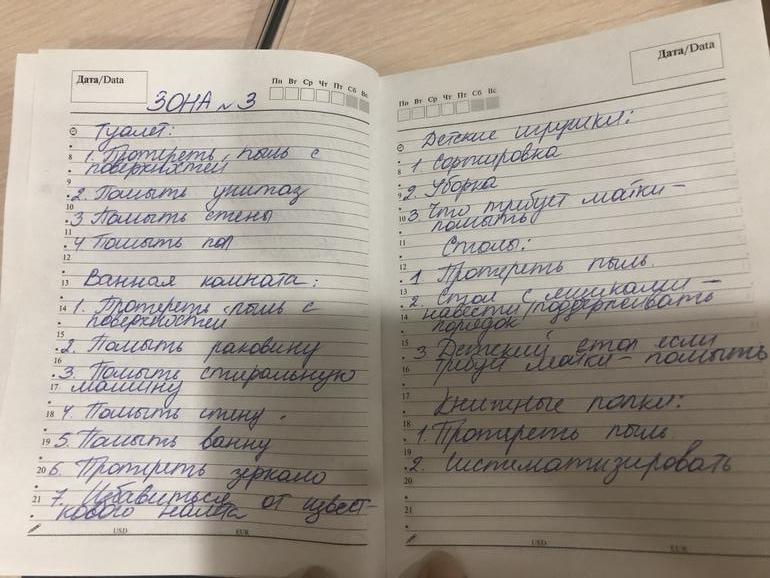 Дата/Data
Пн Вт Ср Чт Пт Сб Вс
ЗОНА №3
Туалет:
8 1. Протереть пыль с
поверхнхтей
9
2. Помыть унитаз
10
3 Помыть стены
11
4 Помыть пол
12
13 Ванная комната:
14 1. Протереть пыль с
поверхнхтей
15
2. Помыть раковину
16
3. Помыть стиральную
17 машину
18 4. Помыть стену.
19 5. Помыть ванну
20 6. Протереть зеркало
21 7. Избавиться от извест-
кового налёта
USD EUR
Дата/Data
Пн Вт Ср Чт Пт Сб Вс
Детские игрушки:
8 1 Сортировка
9 2. Уборка
10 3. Что трибует мойки-
помыть
11
Столы:
12
13 1 Протереть пыль.
2. Стол с ящиками -
14 навести/поддерживать
порядок
15 3. Детский стол если
16 трибуй мойки - помыть
17 Книжные полки:
18
19 1. Протереть пыль.
2. Систиматизировать
20
21
USD EUR